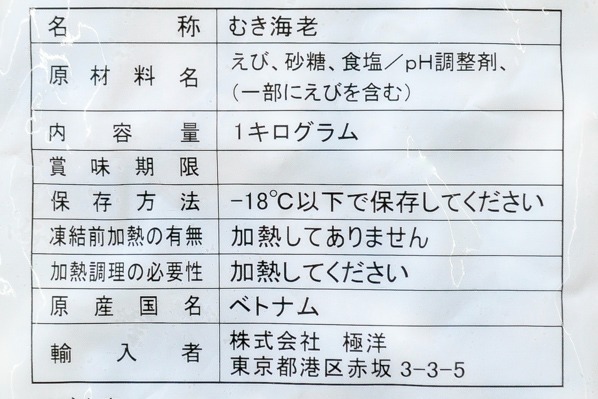 名称 むき海老
原材料名 えび、砂糖、食塩／pH調整剤、
（一部にえびを含む）
内容量 1キログラム
賞味期限
保存方法 -18℃以下で保存してください
凍結前加熱の有無 加熱してありません
加熱調理の必要性 加熱してください
原産国名 ベトナム
輸入者 株式会社 極洋
東京都港区赤坂3-3-5